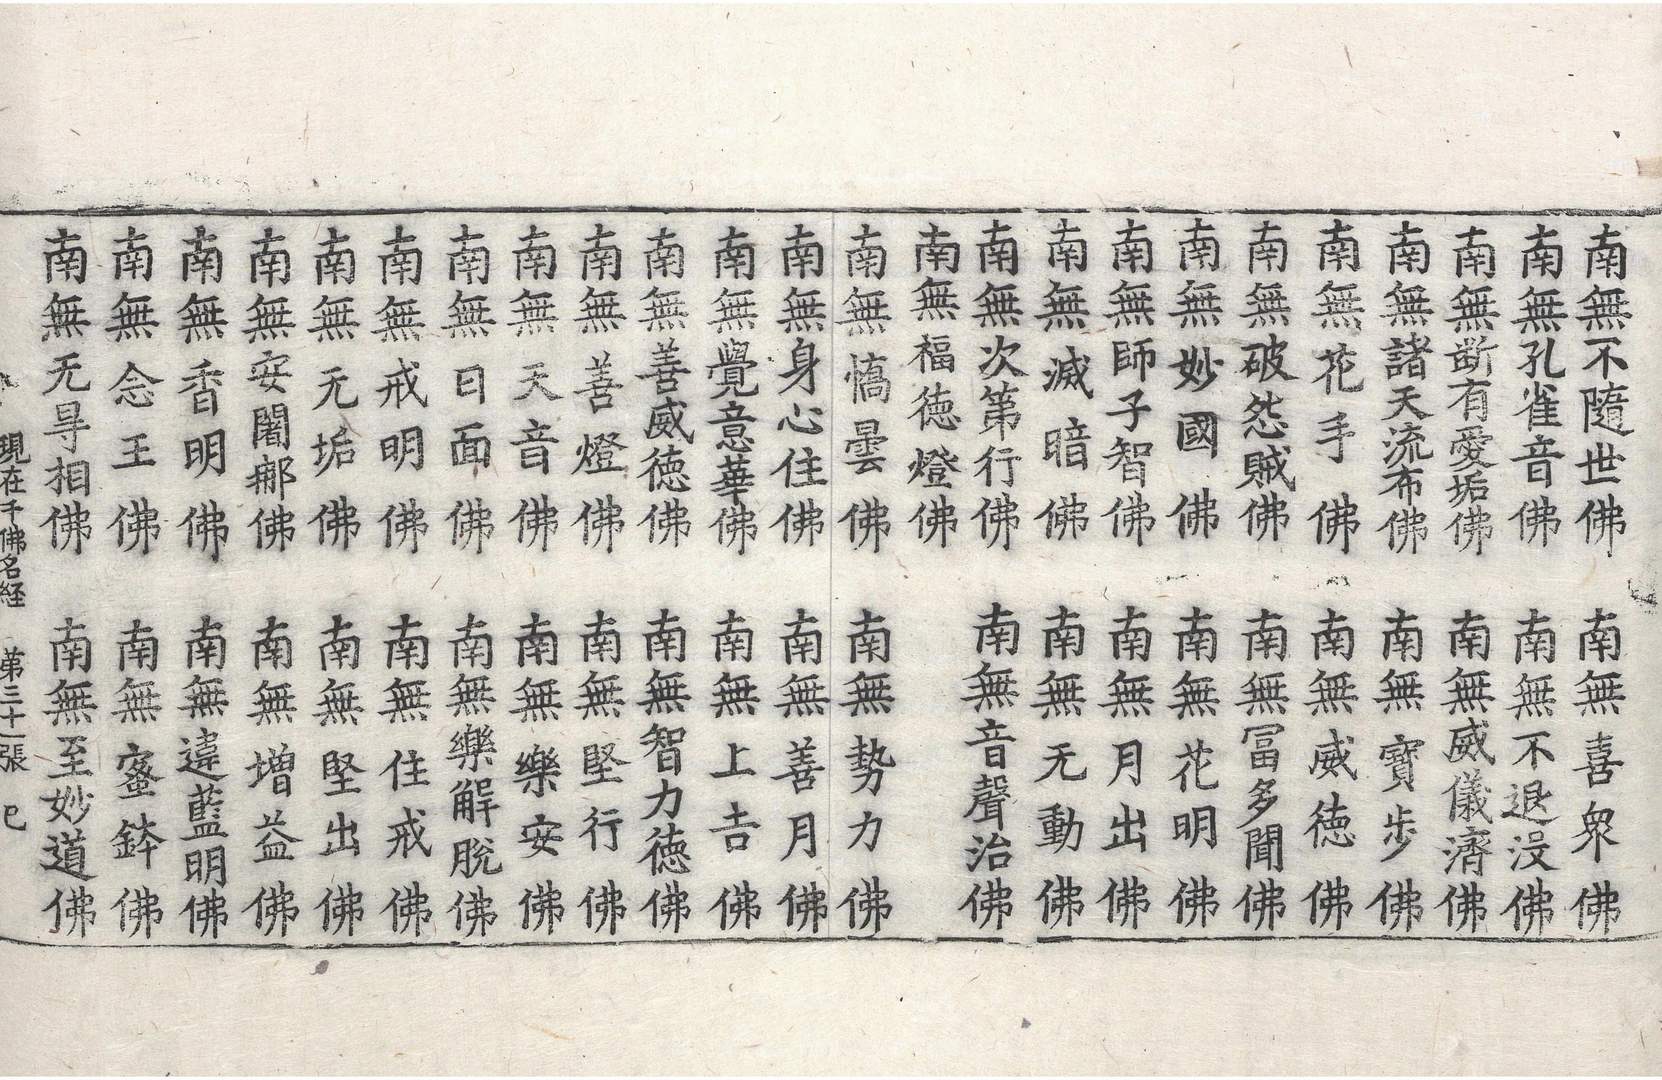 南無不隨世佛　南無喜衆佛
南無孔雀音佛　南無不退没佛
南無斷有愛垢佛　南無威儀濟佛
南無諸天流布佛　南無寶步佛
南無花手佛　南無威徳佛
南無破怨賊佛　南無冨多聞佛
南無妙國佛　南無花明佛
南無師子智佛　南無月出佛
南無滅暗佛　南無无動佛
南無次第行佛　南無音聲治佛
南無福徳燈佛
南無憍曇佛　南無勢力佛
南無身心住佛　南無善月佛
南無覺意華佛　南無上吉佛
南無善威徳佛　南無智力徳佛
南無善燈佛　南無堅行佛
南無天音佛　南無樂安佛
南無日面佛　南無樂解脫佛
南無戒明佛　南無住戒佛
南無无垢佛　南無堅出佛
南無安闍𨚗佛　南無増益佛
南無香明佛　南無違藍明佛
南無念王佛　南無蜜鉢佛
南無无㝵相佛　南無至妙道佛
現在千佛名経　第三十一張　巳